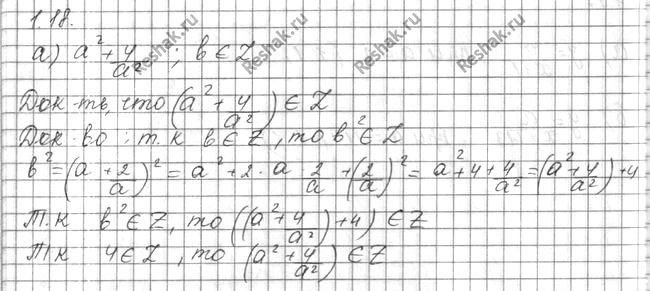 1.18.
а) a² + 4/a² ; b ∈ Z
Док-ть, что (a² + 4/a²) ∈ Z
Док-во: т.к b ∈ Z, то b² ∈ Z
b² = (a + 2/a)² = a² + 2 · a 2/a + (2/a)² = a² + 4 + 4/a² = (a² + 4/a²) + 4
Т.к b² ∈ Z, то ((a² + 4/a²) + 4) ∈ Z
Тк 4 ∈ Z, то (a² + 4/a²) ∈ Z
Reshak.ru Reshak.ru Reshak.ru Reshak.ru